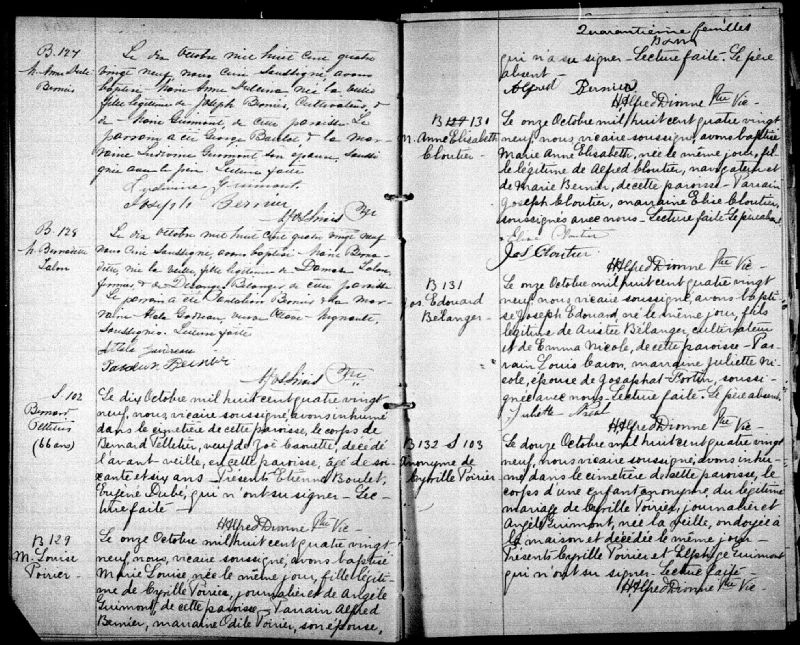 B. 127
Bernier
Le dix Octobre mil huit cent quatre
vingt neuf nous curé soussigné avons
baptisé Marie Anne née la veille
fille légitime de Joseph Bernier, Cultivateur &
de Marie Guimont de cette paroisse Le
parrain a été George & la mar
raine Guimont son épouse soussi
gnée avec le père Lecture faite
Guimont
Joseph Bernier
Ptre
B. 128
M. Bernadette
Talon
Le dix Octobre mil huit cent quatre vingt neuf
nous curé soussigné, avons baptisé Marie Berna
dette, née la veille, fille légitime de Damase Talon,
fermier, & de Bélanger de cette paroisse
Le parrain a été Bernier & la mar
raine
soussignés. Lecture faite
Ptre
S. 102
Bernard
Pelletier
(66 ans)
Le dix Octobre mil huit cent quatre vingt
neuf, nous, vicaire soussigné, avons inhumé
dans le cimetière de cette paroisse, le corps de
Bernard Pelletier, veuf de Zoë Caouette, décédé
l'avant-veille, en cette paroisse, âgé de soi-
xante et six ans - Présents Etienne Boulet,
Eugène Dubé, qui n'ont su signer - Lec-
ture faite -
HAlfred Dionne Ptre Vic -
B 129
M. Louise
Poirier -
Le onze Octobre mil huit cent quatre vingt
neuf, nous, vicaire soussigné, avons baptisé
Marie Louise née le même jour, fille légiti-
me de Cyrille Poirier, journalier et de Angèle
Guimont, de cette paroisse - Parrain Alfred
Bernier, marraine Odile Poirier, son épouse,
Quarantième feuillet
qui n'a su signer - Lecture faite. Le père
absent -
Alfred Bernier
HAlfred Dionne Ptre Vic -
B 127 130
M. Anne Elisabeth
Cloutier -
Le onze Octobre mil huit cent quatre vingt
neuf, nous, vicaire soussigné, avons baptisé
Marie Anne Elisabeth, née le même jour, fil-
le légitime de Alfred Cloutier, navigateur et
de Marie Bernier, de cette paroisse - Parrain
Joseph Cloutier, marraine Elise Cloutier,
soussignés avec nous - Lecture faite Le père absent
Elise Cloutier
Jos Cloutier
HAlfred Dionne Ptre Vic -
B 131
Jos Edouard
Bélanger -
Le onze Octobre mil huit cent quatre vingt
neuf, nous, vicaire soussigné, avons bapti-
sé Joseph Edouard né le même jour, fils
légitime de Aristée Bélanger, cultivateur
et de Emma Nicole, de cette paroisse - Par-
rain Louis Caron, marraine Juliette Ni-
cole, épouse de Josaphat Fortin, soussi-
gnée avec nous - Lecture faite. Le père absent
Juliette
HAlfred Dionne Ptre Vic -
B 132 S 103
Anonyme de
Cyrille Poirier
Le douze Octobre mil huit cent quatre vingt
neuf, nous, vicaire soussigné, avons inhu-
mé dans le cimetière de cette paroisse, le
corps d'une enfant anonyme, du légitime
mariage de Cyrille Poirier, journalier et
Angèle Guimont, née la veille, ondoyée à
la maison et décédée le même jour -
Présents Cyrille Poirier et Elphège Guimont
qui n'ont su signer - Lecture faite -
HAlfred Dionne Ptre Vic -